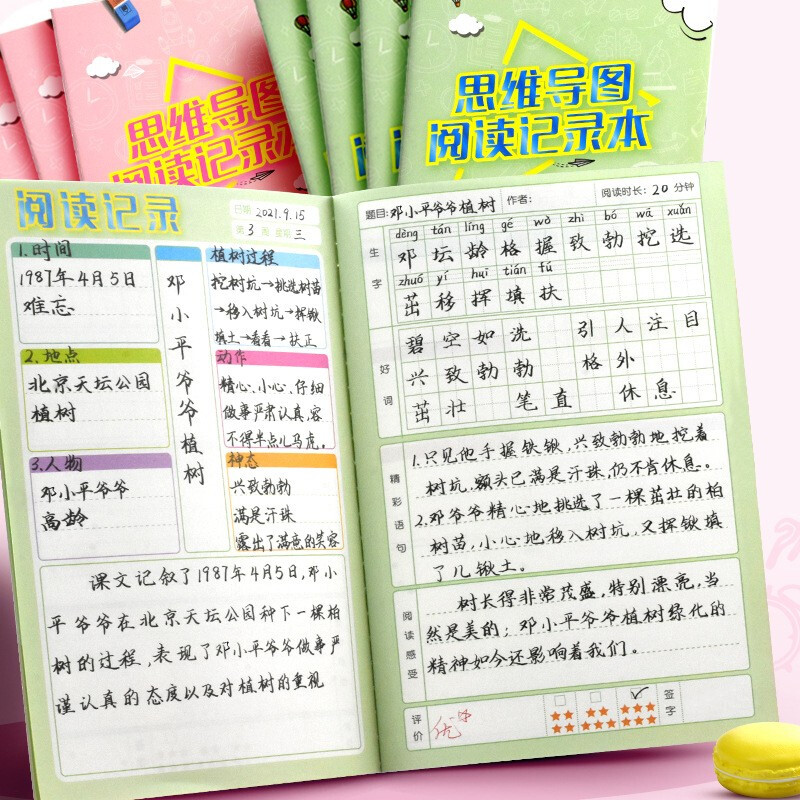 思维导图
阅读记录本
思维导图
阅读记录本
阅读记录
日期 2021.9.15
第 3 周 星期 三
1.时间
1987年4月5日
难忘
2.地点
北京天坛公园
植树
3.人物
邓小平爷爷
高龄
邓小平爷爷植树
植树过程
挖树坑→挑选树苗
→移入树坑→挥锹
填土→看看→扶正
动作
精心、小心、仔细
做事严肃认真,容
不得半点儿马虎。
神态
兴致勃勃
满是汗珠
露出了满意的笑容
课文记叙了1987年4月5日,邓小
平爷爷在北京天坛公园种下一棵柏
树的过程,表现了邓小平爷爷做事严
谨认真的态度以及对植树的重视
题目:邓小平爷爷植树 作者: 阅读时长: 20 分钟
生字
dēng tán líng gé wò zhì bó wā xuǎn
邓 坛 龄 格 握 致 勃 挖 选
zhuó yí huī tián fú
茁 移 挥 填 扶
好词
碧空如洗 引人注目
兴致勃勃 格外
茁壮 笔直 休息
精彩语句
1.只见他手握铁锹,兴致勃勃地挖着
树坑,额头已满是汗珠,仍不肯休息。
2.邓爷爷精心地挑选了一棵茁壮的柏
树苗,小心地移入树坑,又挥锹填
了几锹土。
阅读感受
树长得非常茂盛,特别漂亮,当
然是美的;邓小平爷爷植树绿化的
精神如今还影响着我们。
评价
优
签字